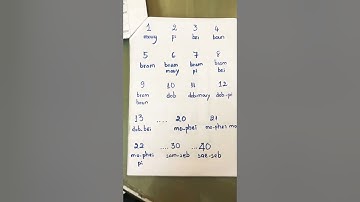 1 2 3 4
mouy pi bei boun
5 6 7 8
bram bram bram bram
mouy pi bei
9 10 11 12
bram dob dob.mouy dob.pi
boun
13 ..... 20 21
dob.bei mo.phei mo.phei mo
22 .... 30 ... 40
mo.phei sam.seb sae.seb
pi